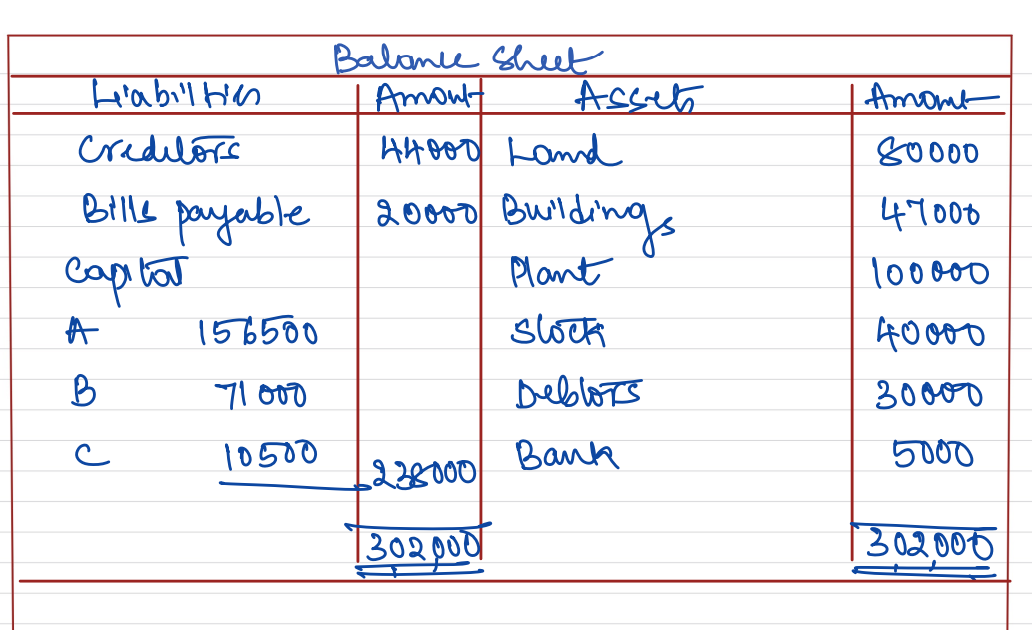 Balance Sheet
Liabilities Amount Assets Amount
Creditors 44000 Land 80000
Bills payable 20000 Buildings 47000
Capital Plant 100000
A 156500 Stock 40000
B 71000 Debtors 30000
C 10500 238000 Bank 5000
302,000 302,000